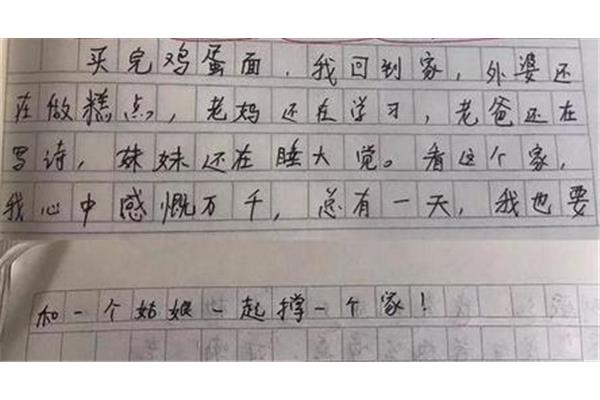 买完鸡蛋面，我回到家，外婆还
在做糕点，老妈还在学习，老爸还在
写诗，妹妹还在睡大觉。看这个家，
我心中感慨万千，总有一天，我也要
和一个姑娘一起撑一个家！